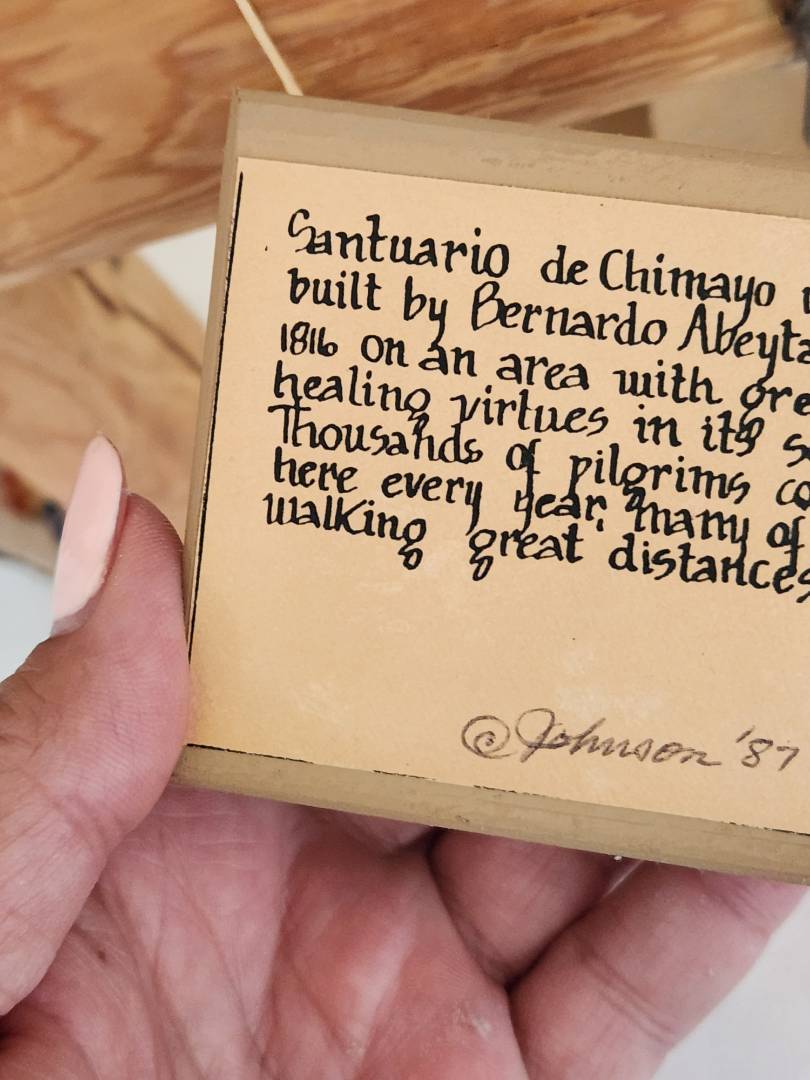 Santuario de Chimayo
built by Bernardo Abeyta
1816 on an area with gre
healing virtues in its s
Thousands of pilgrims co
here every year, many of
walking great distances
© Johnson '87